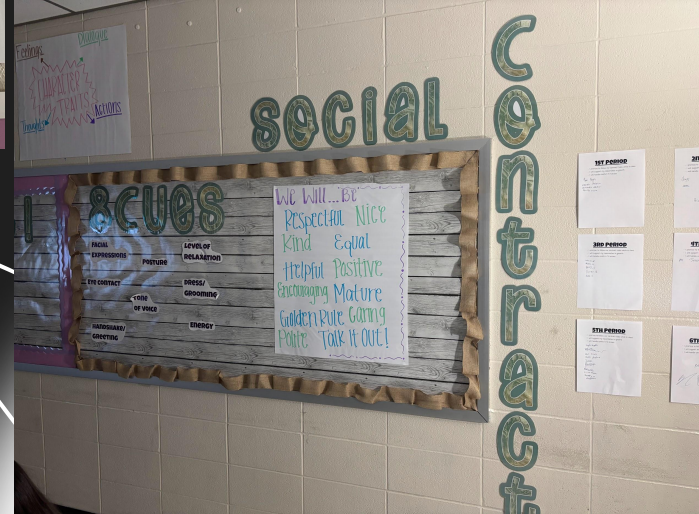 Feelings
Dialogue
CHARACTER
TRAITS
Thoughts
Actions
SOCIAL
contract
8CUES
FACIAL
EXPRESSIONS
POSTURE
LEVEL OF
RELAXATION
EYE CONTACT
DRESS/
GROOMING
TONE
OF VOICE
HANDSHAKE/
GREETING
ENERGY
We Will... Be
Respectful Nice
Kind Equal
Helpful Positive
Encouraging Mature
Golden Rule Caring
Polite Talk It Out!
1ST PERIOD
3RD PERIOD
5TH PERIOD